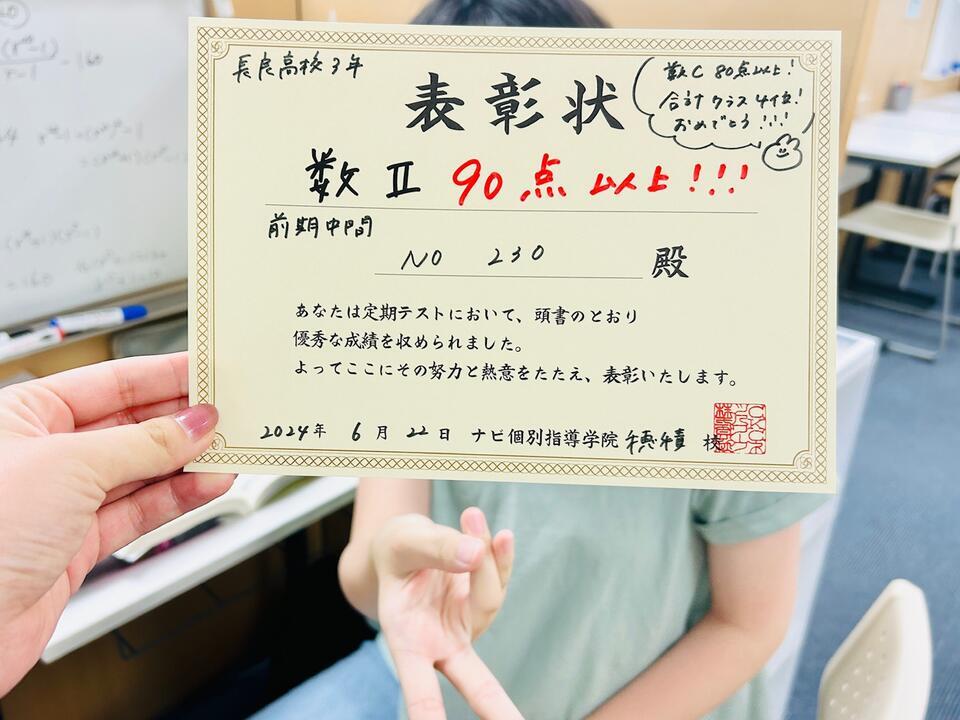 長良高校3年
表彰状
数C 80点以上!
合計クラス4位!
おめでとう!!!
数Ⅱ 90点以上!!!
前期中間
NO 230 殿
あなたは定期テストにおいて、頭書のとおり
優秀な成績を収められました。
よってここにその努力と熱意をたたえ、表彰いたします。
2024年 6月 22日 ナビ個別指導学院 穂積 校